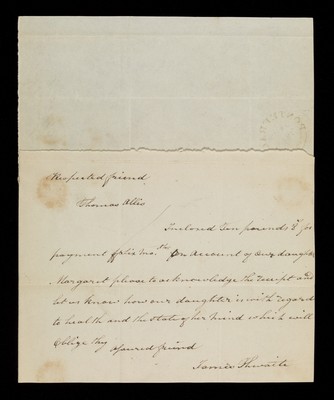 Respected friend
Thomas Allis
Inclosed Ten pounds
payment for six mo.ths on account of our daughter
Margaret please to acknowledge the receipt and
let us know how our daughter is with regard
to health and the state of her mind which will
Oblige thy assured friend
James Thwaite